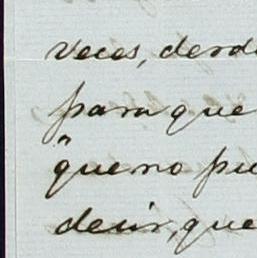 veces, desd
para que
" que no pu
decir, que